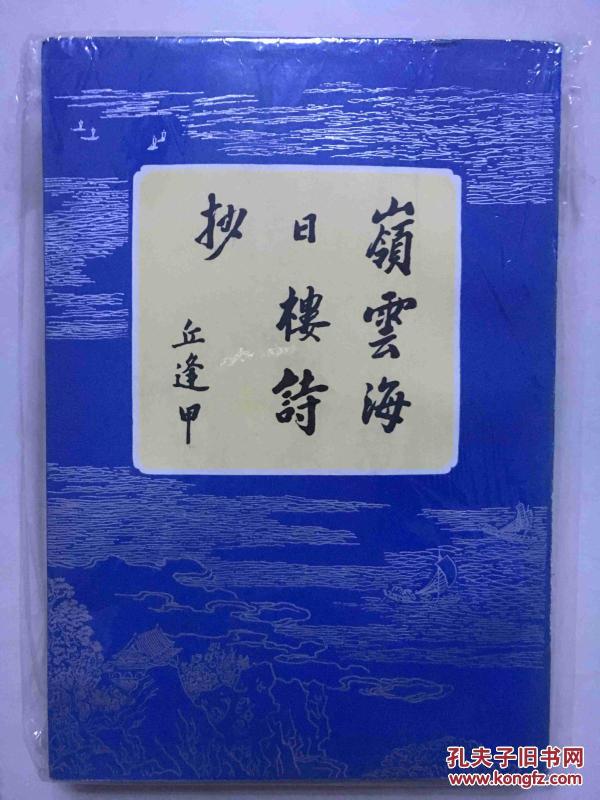 嶺雲海
日樓詩
抄
丘逢甲
孔夫子旧书网
www.kongfz.com